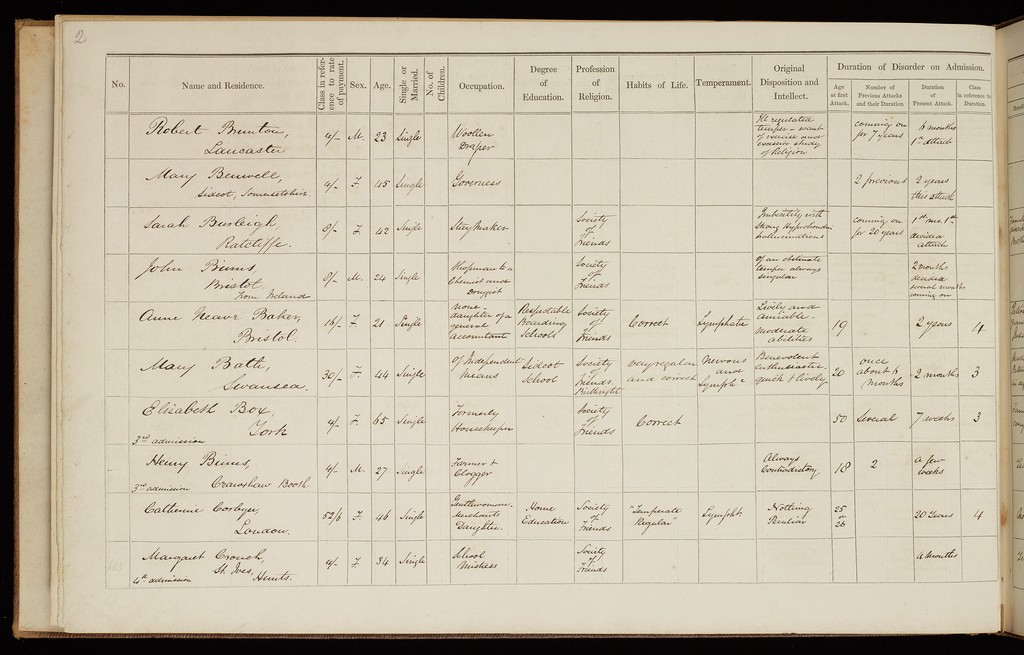 2
No.
Name and Residence.
Class in refer-
ence to rate
of payment.
Sex.
Age.
Single or
Married.
No. of
Children.
Occupation.
Degree
of
Education.
Profession
of
Religion.
Habits of Life.
Temperament.
Original
Disposition and
Intellect.
Duration of Disorder on Admission.
Age
at first
Attack.
Number of
Previous Attacks
and their Duration
Duration
of
Present Attack.
Class
in reference to
Duration.
Robert Brunton,
Lancaster
4/- M. 23 Single
Woollen
Draper
Ill regulated
temper - want
of exercise and
excessive study
of Religion
coming on
for 7 years
6 months
1st attack
Mary Benwell,
Sidcot, Somersetshire.
4/- F. 45 Single
Governess
2 previous
2 years
this attack
Sarah Burleigh,
Ratcliffe.
8/- F. 42 Single
Stay Maker
Society
of
Friends
Imbecility with
Strong Hypochondria
hallucinations
coming on
for 20 years
decided
attack
John Binns,
Bristol,
from Ireland
8/- M. 24 Single
Shopman to a
Chemist and
Druggist
Society
of
Friends
Of an obstinate
temper always
singular
2 months
decided
several months
coming on
Anne Neave Baker,
Bristol.
16/- F. 21 Single
none -
daughter of a
general
accountant
Respectable
Boarding
Schools
Society
of
Friends
Correct
Lymphatic
Lively and
amiable -
moderate
abilities
19
2 years
4
Mary Bath,
Swansea.
30/- F. 44 Single
Of Independent
Means
Sidcot
School
Society
of
Friends
Birthright
very regular
and correct
Nervous
and
Lymphc
Benevolent
Enthusiastic
quick & lively
20
once
about 6
months
2 months
3
Elizabeth Box,
York
3rd admission
4/- F. 65 Single
Formerly
Housekeeper
Society
of
Friends
Correct
50
Several
7 weeks
3
Henry Binns,
3rd admission Crawshaw Booth
4/- M. 27 Single
Farmer &
Clogger
Always
Contradictory
18
2
a few
weeks
Catherine Corbyn,
London.
52/6 F. 46 Single
Gentlewoman
Merchants
Daughter.
Home
Education
Society
of
Friends
"Temperate
Regular"
Lympht.
Nothing
Peculiar
25
or
26
20 Years
4
Margaret Crouch,
St. Ives, Hunts.
4th admission
4/- F. 34 Single
School
Mistress
Society
of
Friends
4 months